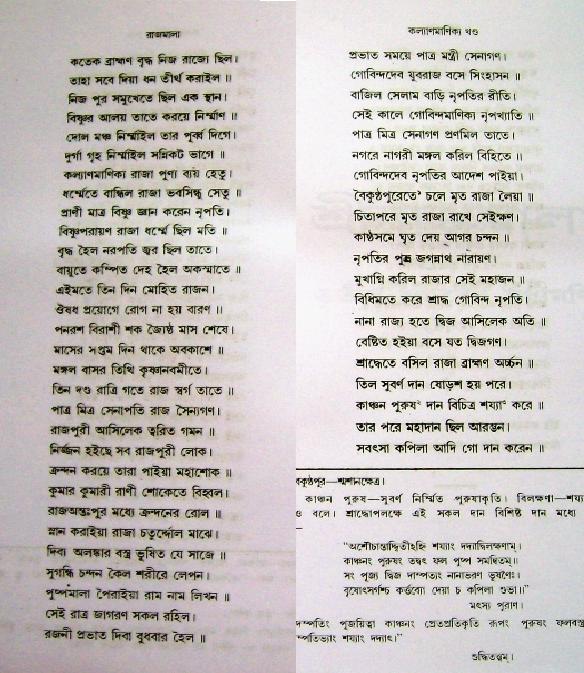 রাজমালা
কতেক ব্রাহ্মণ বৃদ্ধ নিজ রাজ্যে ছিল।
তাহা সবে দিয়া ধন তীর্থ করাইল ॥
নিজ পুর সমুখেতে ছিল এক স্থান।
বিষ্ণুর আলয় তাতে করয়ে নির্ম্মাণ ॥
দোল মঞ্চ নির্ম্মাইল তার পূর্ব্ব দিগে।
দুর্গা গৃহ নির্ম্মাইল সন্নিকট ভাগে ॥
কল্যাণমাণিক্য রাজা পুণ্য ব্যয় হেতু।
ধর্ম্মেতে বান্ধিল রাজা ভবসিন্ধু সেতু ॥
প্রাণী মাত্র বিষ্ণু জ্ঞান করেন নৃপতি।
বিষ্ণুপরায়ণ রাজা ধর্ম্মে ছিল মতি ॥
বৃদ্ধ হৈল নরপতি জ্বর ছিল তাতে।
বায়ুতে কম্পিত দেহ হৈল অকস্মাতে ॥
এইমতে তিন দিন মোহিত রাজন।
ঔষধ প্রয়োগে রোগ না হয় বারণ ॥
পনরশ বিরাশী শক জ্যৈষ্ঠ মাস শেষে।
মাসের সপ্তম দিন থাকে অবকাশে ॥
মঙ্গল বাসর তিথি কৃষ্ণানবমীতে।
তিন দণ্ড রাত্রি গতে রাজ স্বর্গ তাতে ॥
পাত্র মিত্র সেনাপতি রাজ সৈন্যগণ।
রাজপুরী আসিলেক ত্বরিত গমন ॥
নির্জ্জন হইছে সব রাজপুরী লোক।
ক্রন্দন করয়ে তারা পাইয়া মহাশোক ॥
কুমার কুমারী রাণী শোকেতে বিহ্বল।
রাজঅন্তঃপুর মধ্যে ক্রন্দনের রোল ॥
স্নান করাইয়া রাজা চতুর্দ্দোল মাঝে।
দিব্য অলঙ্কার বস্ত্র ভূষিত যে সাজে ॥
সুগন্ধি চন্দন কৈল শরীরে লেপন।
পুষ্পমালা পৈরাইয়া রাম নাম লিখন ॥
সেই রাত্র জাগরণ সকল রহিল।
রজনী প্রভাত দিবা বুধবার হৈল ॥
কল্যাণমাণিক্য খণ্ড
প্রভাত সময়ে পাত্র মন্ত্রী সেনাগণ।
গোবিন্দদেব যুবরাজ বসে সিংহাসন ॥
বাজিল সেলাম বাড়ি নৃপতির রীতি।
সেই কালে গোবিন্দমাণিক্য নৃপখ্যাতি ॥
পাত্র মিত্র সেনাগণ প্রণমিল তাতে।
নগরে নাগরী মঙ্গল করিল বিহিতে ॥
গোবিন্দদেব নৃপতির আদেশ পাইয়া।
বৈকুণ্ঠপুরেতে১ চলে মৃত রাজা লৈয়া ॥
চিতাপরে মৃত রাজা রাখে সেইক্ষণ।
কাষ্ঠসমে ঘৃত দেয় আগর চন্দন ॥
নৃপতির পুত্র জগন্নাথ নারায়ণ।
মুখাগ্নি করিল রাজার সেই মহাজন ॥
বিধিমতে করে শ্রাদ্ধ গোবিন্দ নৃপতি।
নানা রাজ্য হতে দ্বিজ আসিলেক অতি ॥
বেষ্টিত হইয়া বসে যত দ্বিজগণ।
শ্রাদ্ধেতে বসিল রাজা ব্রাহ্মণ অর্চ্চন ॥
তিল সুবর্ণ দান ষোড়শ হয় পরে।
কাঞ্চন পুরুষ২ দান বিচিত্র শয্যা৩ করে ॥
তার পরে মহাদান ছিল আরম্ভন।
সবৎসা কপিলা আদি গো দান করেন ॥
বকুণ্ঠপুর—শ্মশানক্ষেত্র।
কাঞ্চন পুরুষ—সুবর্ণ নির্ম্মিত পুরুষাকৃতি। বিলক্ষণা—শয্য
ও বলে। শ্রাদ্ধোপলক্ষে এই সকল দান বিশিষ্ট দান মধ্যে
“অশৌচান্তাদ্দ্বিতীহহ্নি শয্যাং দদ্যাদ্বিলক্ষণাম্।
কাঞ্চনং পুরুষং তদ্বৎ ফল পুষ্প সমন্বিতম্॥
সং পূজ্য দ্বিজ দাম্পত্যং নানাভরণ ভূষণৈঃ।
বৃষোৎসর্গশ্চ কর্ত্তব্যো দেয়া চ কপিলা শুভা॥”
মৎস্য পুরাণ।
দম্পতিং পূজয়িত্বা কাঞ্চনং প্রেতপ্রতিকৃতি রূপং পুরুষং ফলবস্ত্র
ম্পতিভ্যাং শয্যাং দদ্যাৎ।”
শুদ্ধিতত্ত্বম্।